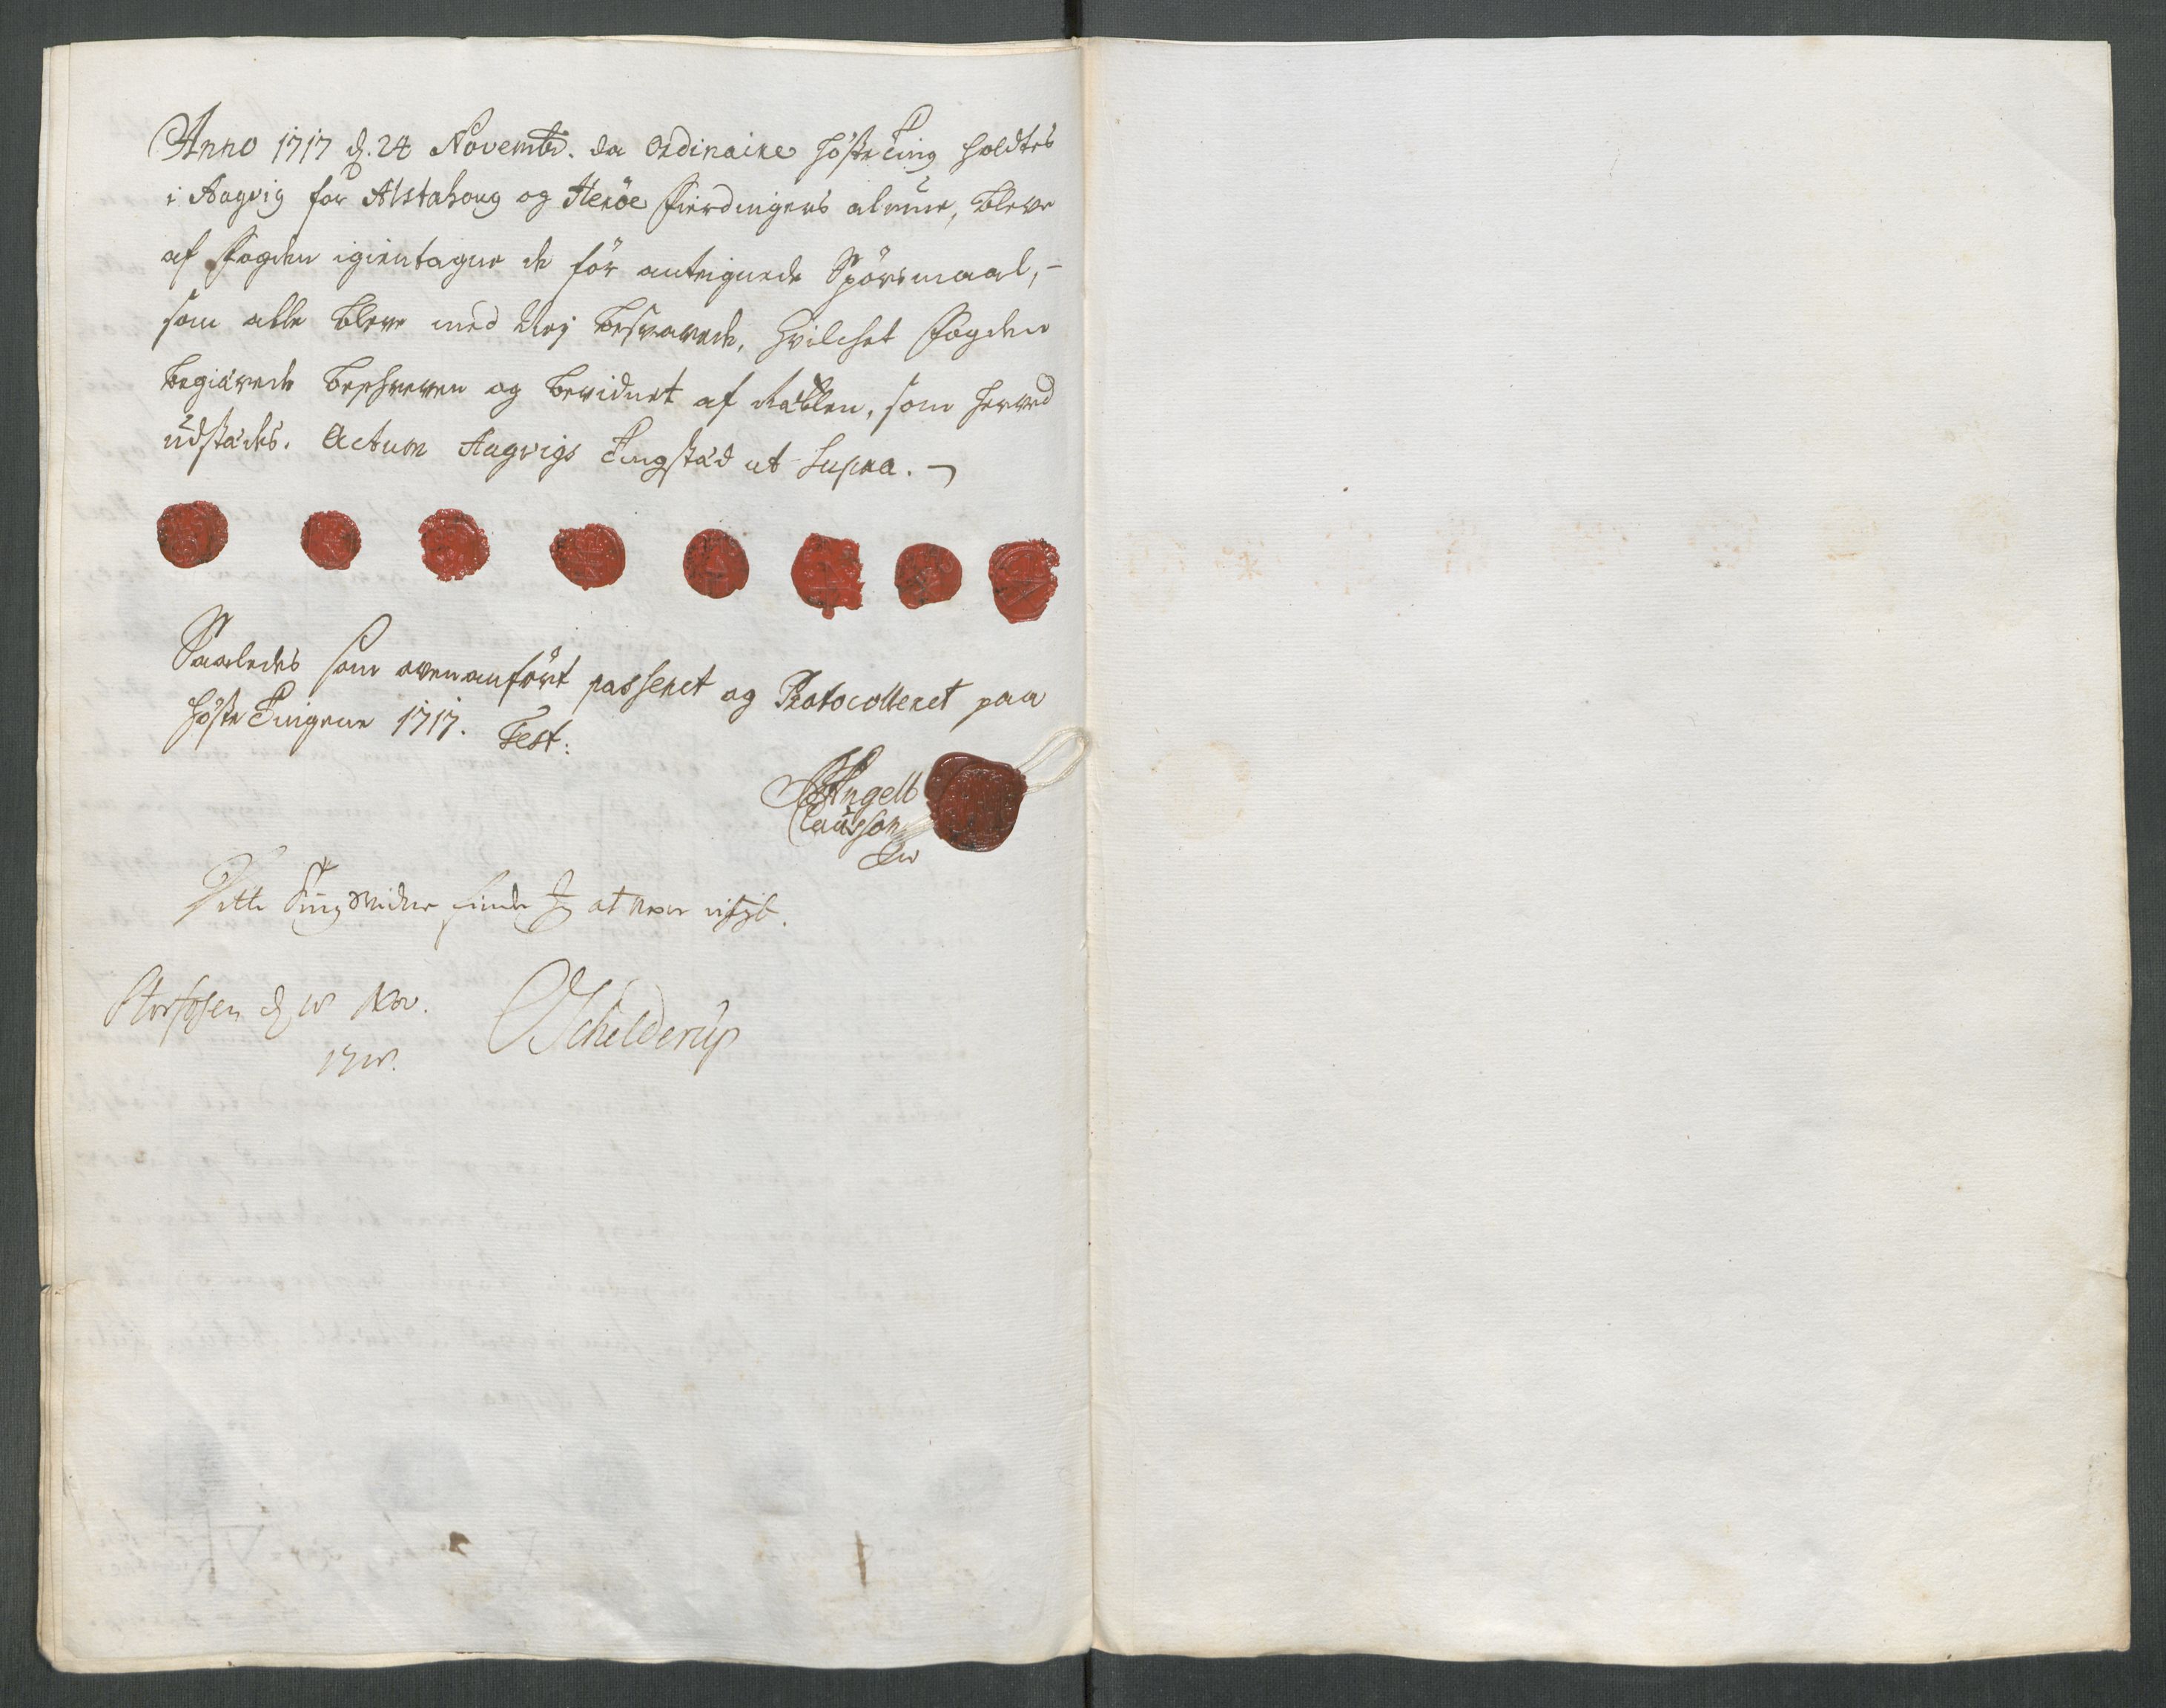 Anno 1717 d. 24 Novembr. da Ordinaire Høste Ting holdtes
i Aagvig for Alstahoug og Herøe Fierdingers almue, bleve
af Fogden igientagne de før antegnede Spørsmaal,
som alle bleve med Nej besvarede, hvilchet Fogden
begiærede beschreven og bevidnet af Rætten, som herved
udstædes. Actum Aagvigs Tingstæd ut Supra.
Saaledes som ovenanført passeret og Protocolleret paa
Høste Tingene 1717. Test:
Angell
Clausson
Dette Tingswidne finde Jeg at være rigtigt.
Storfosen d. Nov.
Schelderup